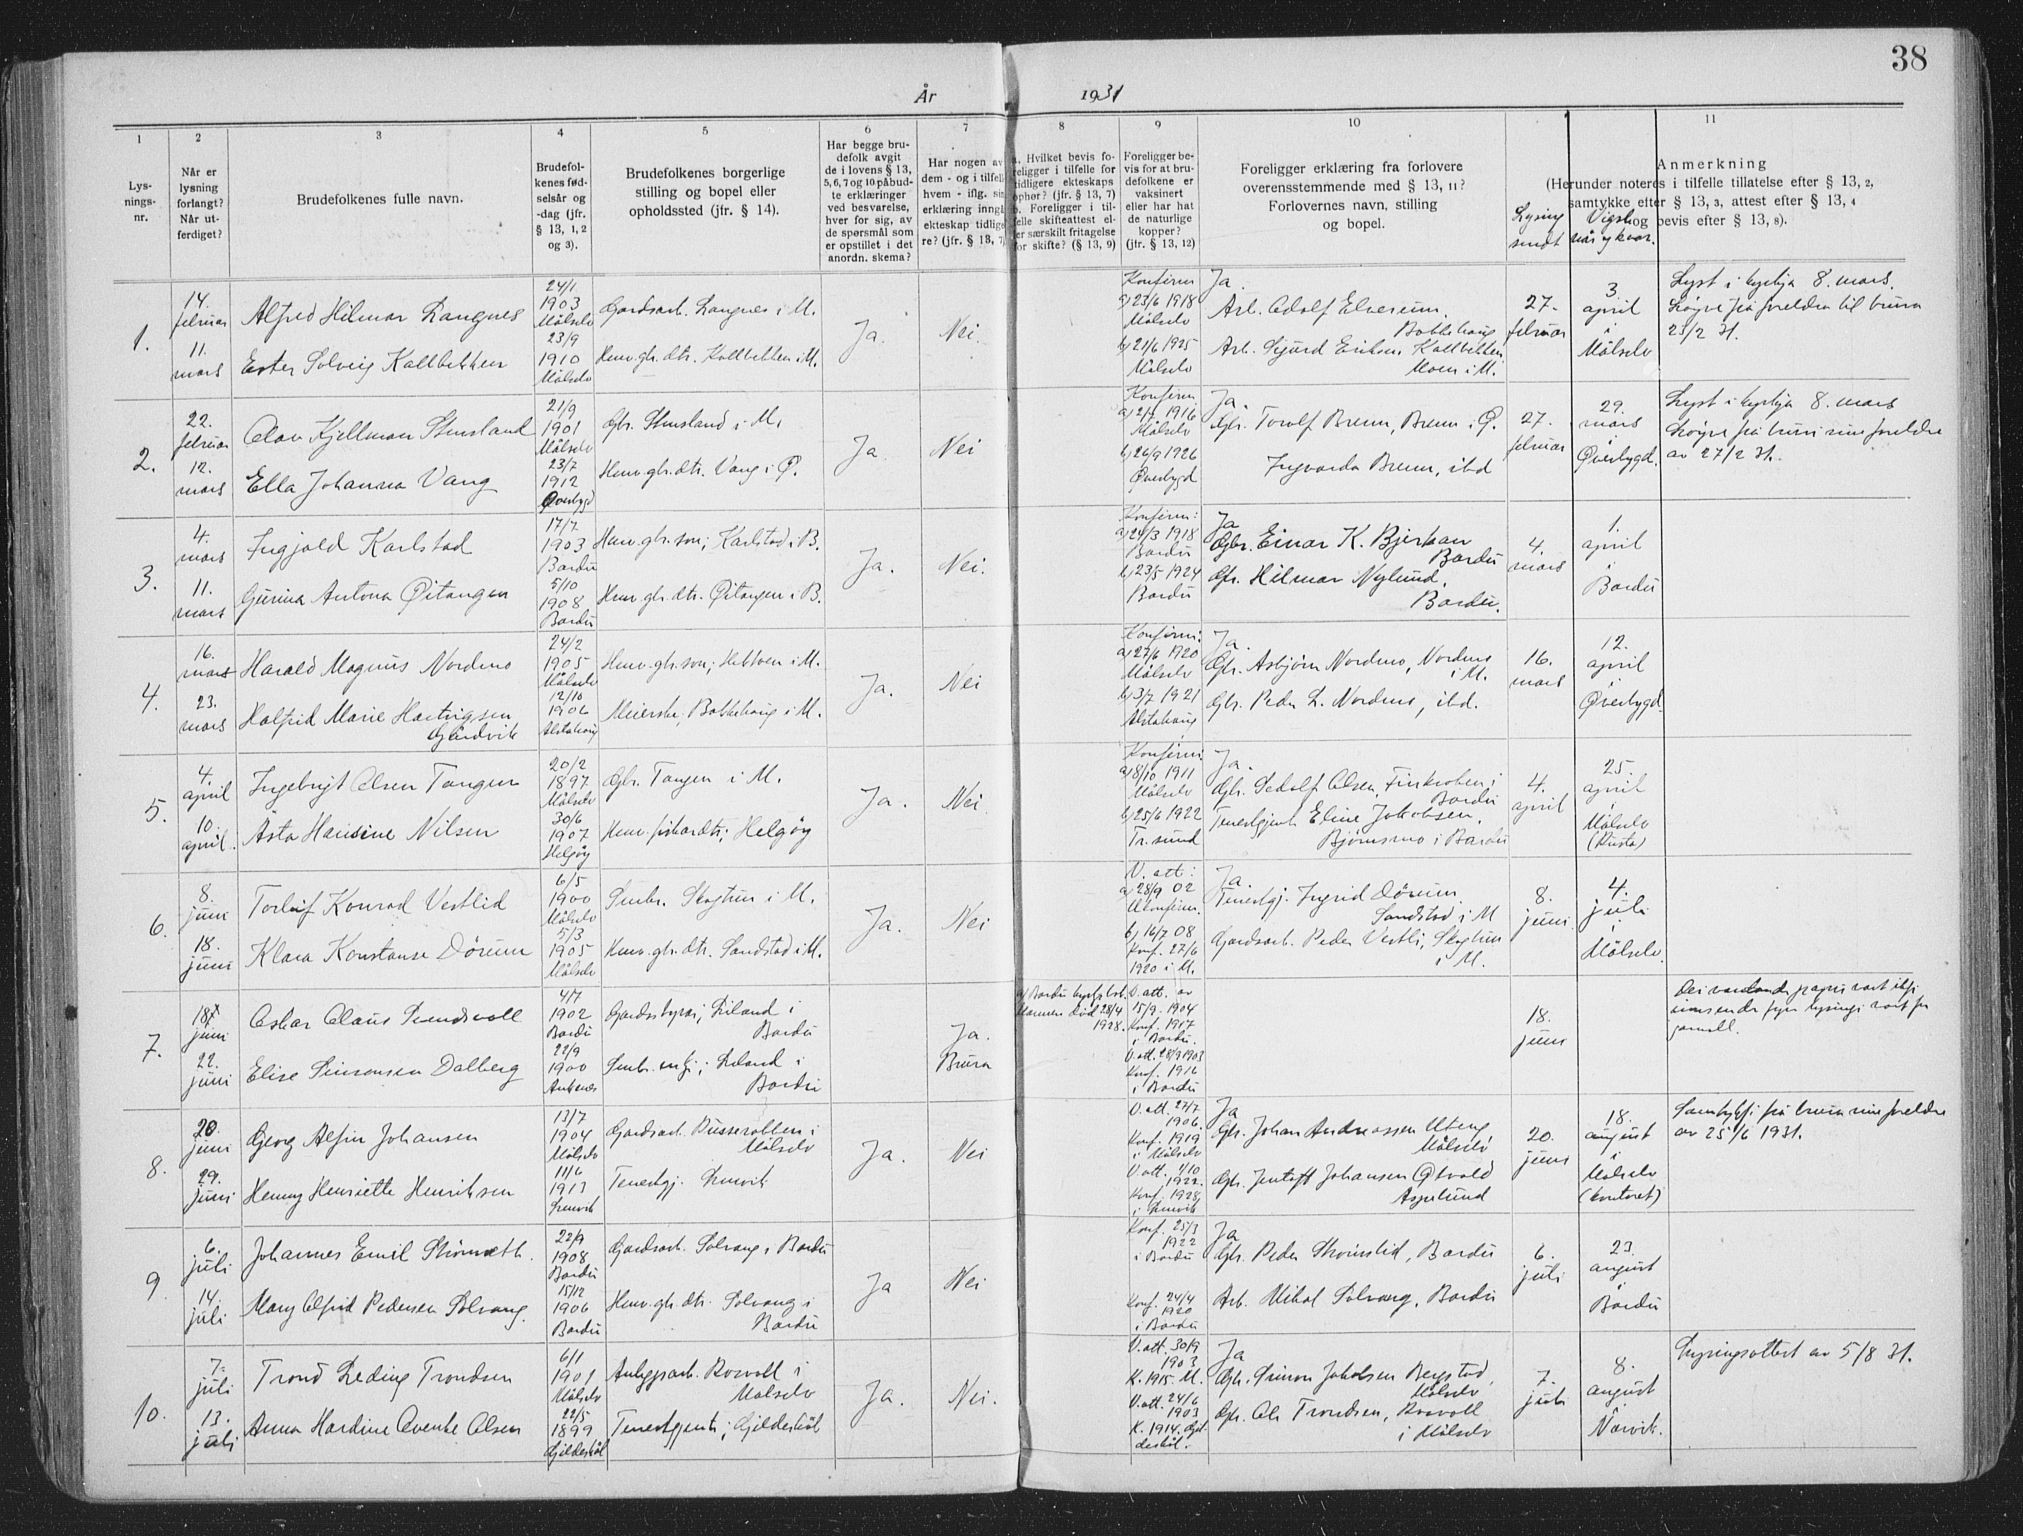 38
År 1931
1 2 3 4 5 6 7 8 9 10 11
Lys-
nings-
nr.
Når er
lysning
forlangt?
Når ut-
ferdiget?
Brudefolkenes fulle navn.
Brudefol-
kenes fød-
selsår og
-dag (jfr.
§ 13, 1, 2
og 3).
Brudefolkenes borgerlige
stilling og bopel eller
opholdssted (jfr. § 14).
Har begge bru-
defolk avgit
de i lovens § 13,
5, 6, 7 og 10 påbud-
te erklæringer
ved besvarelse,
hver for sig, av
de spørsmål som
er opstillet i det
anordn. skema?
Har nogen av
dem - og i tilfelle
hvem - iflg. sin
erklæring inngå
ekteskap tidlige
re? (jfr. § 13, 7)
a. Hvilket bevis fo-
religger i tilfelle for
tidligere ekteskaps
ophør? (jfr. § 13, 7)
b. Foreligger i til-
felle skifteattest el-
ler særskilt fritagelse
for skifte? (§ 13, 9)
Foreligger be-
vis for at bru-
defolkene er
vaksinert
eller har hat
de naturlige
kopper?
(jfr. § 13, 12)
Foreligger erklæring fra forlovere
overensstemmende med § 13, 11?
Forlovernes navn, stilling
og bopel.
Lysing
sendt
Vigsla
når og kvar.
Anmerkning
(Herunder noteres i tilfelle tillatelse efter § 13, 2,
samtykke efter § 13, 3, attest efter § 13, 4
og bevis efter § 13, 8).
1.
14.
februar
11.
mars
Alfred Hilmar Langnes
Ester Solveig Kallbekken
24/1
1903
Målselv
23/9
1910
Målselv
Gardsarb. Langnes i M.
Heimv. gb. dtr. Kallbekken i M.
Ja.
Nei
Konfirm
a) 23/6 1918
Målselv
b) 21/6 1925
Målselv
Ja.
Arb. Adolf Elverum.
Bakkehaug
Arb. Sjurd Eriksen Kallbekken
Moen i M.
27.
februar
3.
april
i
Målselv
Lyst i kyrkja 8. mars.
Løyve frå foreldra til brura
23/2 31.
2.
22.
februar
12.
mars
Olav Kjellman Stensland
Ella Johanna Vang
21/9
1901
Målselv
23/7
1912
Øverbygd
Gbr. Stensland i M.
Heimv. gb. dtr. Vang i Ø.
Ja.
Nei
Konfirm.
a) 2/7 1916
Målselv
b) 26/9 1926
Øverbygd
Ja.
Gbr. Torolf Brenn, Brenn i Ø.
Ingvarda Brenn, ibd
27.
februar
29.
mars
i
Øverbygd.
Lyst i kyrkja 8. mars
Løyve frå bruri sine foreldre
av 27/2 31.
3.
4.
mars
11.
mars
Ingjald Karlstad
Gurina Antona Øitangen
17/7
1903
Bardu
5/10
1908
Bardu
Heimv. gbr. son, Karlstad i B.
Heimv. gb. dtr. Øitangen i B.
Ja.
Nei.
Konfirm:
a) 24/3 1918
Bardu
b) 23/5 1924
Bardu
Ja
Gbr. Einar K. Bjerkan
Bardu
Gbr. Hilmar Nylund,
Bardu.
4.
mars
1.
april
i
Bardu
4.
16.
mars
23.
mars
Harald Magnus Nordmo
Halfrid Marie Hartvigsen
Gjerdvik
24/2
1905
Målselv
12/10
1906
Alstahaug
Heimv. gbr. son,
Meierske, Bakkehaug i M.
Ja.
Nei
Konfirm:
a) 27/6 1920
Målselv
b) 3/7 1921
Alstahaug
Ja.
Gbr. Asbjørn Nordmo, Nordmo
i M.
Gbr. Peder L. Nordmo, ibd.
16.
mars
12.
april
i
Øverbygd.
5.
4.
april
10.
april.
Ingebrigt Olsen Tangen
Åsta Hansine Nilsen
20/2
1897
Målselv
30/6
1907
Helgøy
Gbr. Tangen i M.
Heimv. fiskardtr; Helgøy
Ja.
Nei
Konfirm:
a) 8/10 1911
Målselv
b) 25/6 1922
Tr.sund
Ja.
Gbr. Sedolf Olsen, Finkroken i
Bardu
Tenestgjent Eline Jakobsen,
Bjørnsmo i Bardu
4.
april
25.
april
i
Målselv
(Rusta)
6.
8.
juni
18.
juni
Torleif Konrad Vestlid
Klara Konstanse Dörum
6/5
1900
Målselv
5/3
1905
Målselv
Småbr. Skogtun i M.
Heimv. gb. dtr. Sandstad i M.
Ja.
Nei
V. att:
a) 28/9 02
b) 16/7 08
Konf. 27/6
1920 i M.
Ja.
Tenestgj. Ingrid Dörum
Sandstad i M
Gardsarb. Peder Vestli, Skogtun
i M.
8.
juni.
4.
juli
i
Målselv.
7.
18.
juni
22.
juni
Oskar Claus Svendsvoll
Elise Simonsen Dalberg
1902
Bardu
22/9
1900
Ankenes
Gardsstyrar, Liland i
Bardu
Liland i
Bardu
Ja.
Brura
Mannen död 28/4
1928.
V. att. av
15/9. 1904
Konf. 1917
i Bardu.
V. att. 28/9 1903
Konf. 1916
i Bardu
18.
juni
8.
20.
juni
29.
juni
Georg Alfin Johansen
Henny Henriette Henriksen
13/7
1904
Målselv
11/6
1913
Lenvik
Gardsarb. Russerabben i
Målselv
Tenestgj. Lenvik
Ja.
Nei
V. att. 27/7
1906.
Konf. 1919
i Målselv
V. att. 1/10
1922.
Konf. 1928,
i Lenvik
Ja
Gbr. Johan Andreassen Uteng
Målselv
Gbr. Jentoft Johansen Øvold
Aspelund
20.
juni
18.
august
i
Målselv
(kontoret)
Samtykkje frå brura sine foreldre
av 25/6 1931.
9.
6.
juli
14.
juli
Johannes Emil Strömseth.
Mary Alfrid Pedersen Solvang.
22/9
1908
Bardu
15/12
1906
Bardu
Gardsarb. Solvang i Bardu
Heimv. gb. dtr. Solvang i
Bardu
Ja
Nei
Konf. 25/3
1922
i Bardu
Konf. 24/4
1920
i Bardu
Ja
Gbr. Peder Strömslid, Bardu
Arb. Mikal Solvang, Bardu
6.
juli
23.
august
i
Bardu
10.
7.
juli
13.
juli
Trond Leding Trondsen
Anna Hardine Ovenke Olsen
6/1
1901
Målselv
22/5
1899
Gjildeskål
Anleggsarb. Rosvoll i
Målselv
Tenestgjent, Gjildeskål
Ja.
Nei.
V. att. 30/9
1903
K. 1915. M.
V. att. 24/6
1903
K. 1914. Gjil-
deskål.
Ja
Gbr. Simon Jakobsen Bergstad,
Målselv
Gbr. Ole Trondsen, Rosvoll
i Målselv
7.
juli
8.
august
i
Narvik.
Lysingsattest av 5/8 31.